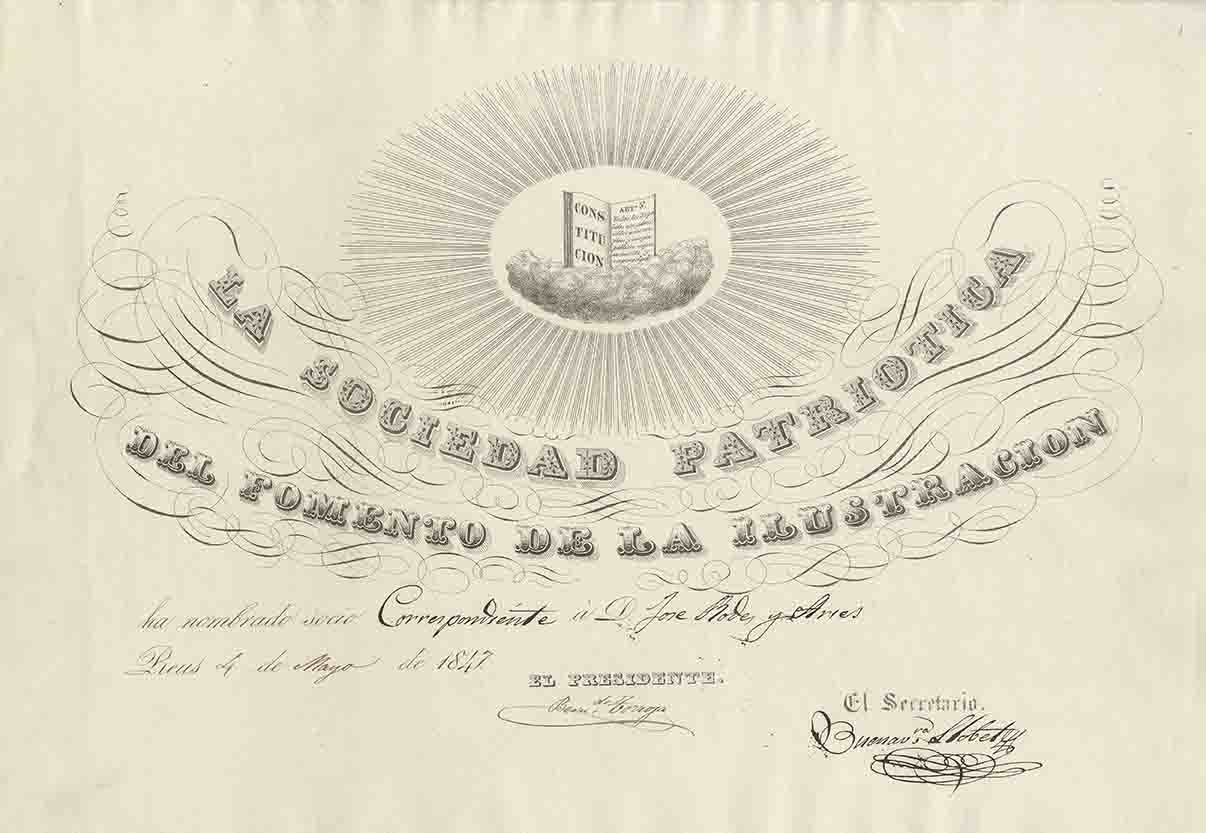 CONS
TITU
CION
ART. 2º
LA SOCIEDAD PATRIOTICA
DEL FOMENTO DE LA ILUSTRACION
ha nombrado socio Correspondiente á D. Jose Rodes y Aries
Reus 4 de Mayo de 1847
EL PRESIDENTE.
Bern.do Torroja
El Secretario.
Buenav.ra Llobet